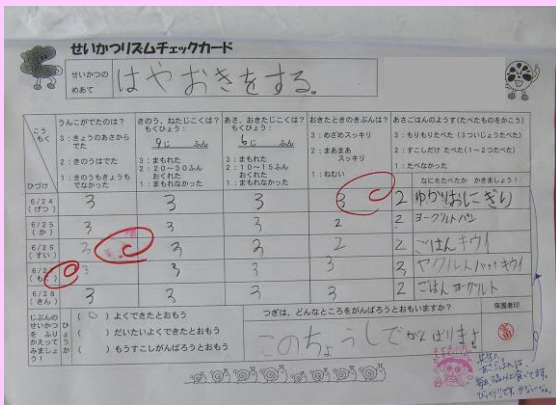 せいかつリズムチェックカード
せいかつの
めあて
はやおきをする。
こう
もく
ひづけ
うんこがでたのは?
3:きょうのあさから
でた
2:きのうはでた
1:きのうもきょうも
でなかった
きのう、ねたじこくは?
もくひょう:
9じ ふん
3:まもれた
2:20〜30ふん
おくれた
1:まもれなかった
あさ、おきたじこくは?
もくひょう:
6じ ふん
3:まもれた
2:10〜15ふん
おくれた
1:まもれなかった
おきたときのきぶんは?
3:めざめスッキリ
2:まあまあ
スッキリ
1:ねむい
あさごはんのようす(たべたものをかこう)
3:もりもりたべた(3ついじょうたべた)
2:すこしだけ たべた(1〜2つたべた)
1:たべなかった
なにをたべたか かきましょう!
6/24
(げつ)
3 3 3 3 2 ゆかりおにぎり
6/25
(か)
3 3 3 2 2 ヨーグルトパン
6/26
(すい)
3 3 3 2 2 ごはんキウイ
6/27
(もく)
3 3 3 3 3 ヤクルト バナナ キウイ
6/28
(きん)
3 3 3 3 2 ごはんヨーグルト
じぶんの
せいかつ
を ふり
かえって
みましょ
う!
ひょうか
(○)よくできたとおもう
( )だいたいよくできたとおもう
( )もうすこしがんばろうとおもう
つぎは、どんなところをがんばろうとおもいますか?
このちょうしでがんばります
保護者印